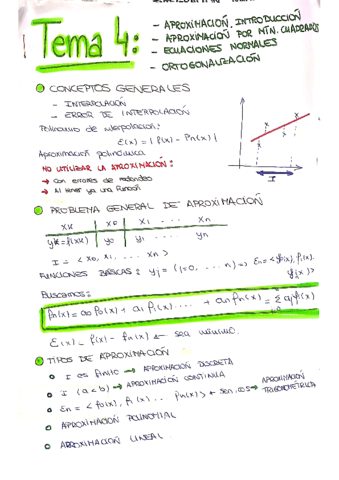 Tema 4:
- APROXIMACIÓN. INTRODUCCIÓN
- APROXIMACIÓN POR MÍN. CUADRADOS
- ECUACIONES NORMALES
- ORTOGONALIZACIÓN
CONCEPTOS GENERALES
- INTERPOLACIÓN
- ERROR DE INTERPOLACIÓN
Polinomio de interpolación:
E(x) = | f(x) - Pn(x) |
Aproximación polinómica
NO UTILIZAR LA APROXIMACIÓN:
→ Con errores de redondeo
→ Al tener ya una función
I
PROBLEMA GENERAL DE APROXIMACIÓN
xk | x0 | x1 ... xn
yk=f(xk) | y0 | y1 ... yn
I = < x0, x1, ... xn >
FUNCIONES BÁSICAS: (j=0, ... n)
Buscamos:
sea mínimo.
TIPOS DE APROXIMACIÓN
I es finito → APROXIMACIÓN DISCRETA
I (a<b) → APROXIMACIÓN CONTINUA
sen, cos → APROXIMACIÓN TRIGONOMÉTRICA
APROXIMACIÓN POLINOMIAL
APROXIMACIÓN LINEAL